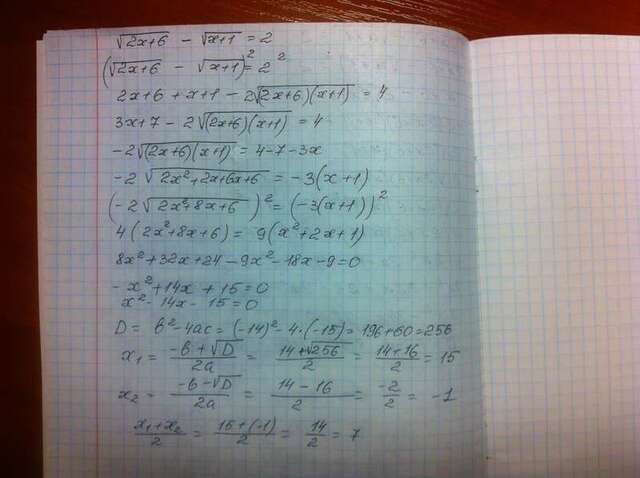 √(2x+6) - √(x+1) = 2
(√(2x+6) - √(x+1))² = 2²
2x+6 + x+1 - 2√((2x+6)(x+1)) = 4
3x+7 - 2√((2x+6)(x+1)) = 4
-2√((2x+6)(x+1)) = 4-7-3x
-2√(2x²+2x+6x+6) = -3(x+1)
(-2√(2x²+8x+6))² = (-3(x+1))²
4(2x²+8x+6) = 9(x²+2x+1)
8x²+32x+24-9x²-18x-9=0
-x²+14x+15=0
x²-14x-15=0
D = b²-4ac = (-14)²-4·(-15) = 196+60=256
x₁ = (-b+√D)/2a = (14+√256)/2 = (14+16)/2 = 15
x₂ = (-b-√D)/2a = (14-16)/2 = -2/2 = -1
(x₁+x₂)/2 = (15+(-1))/2 = 14/2 = 7